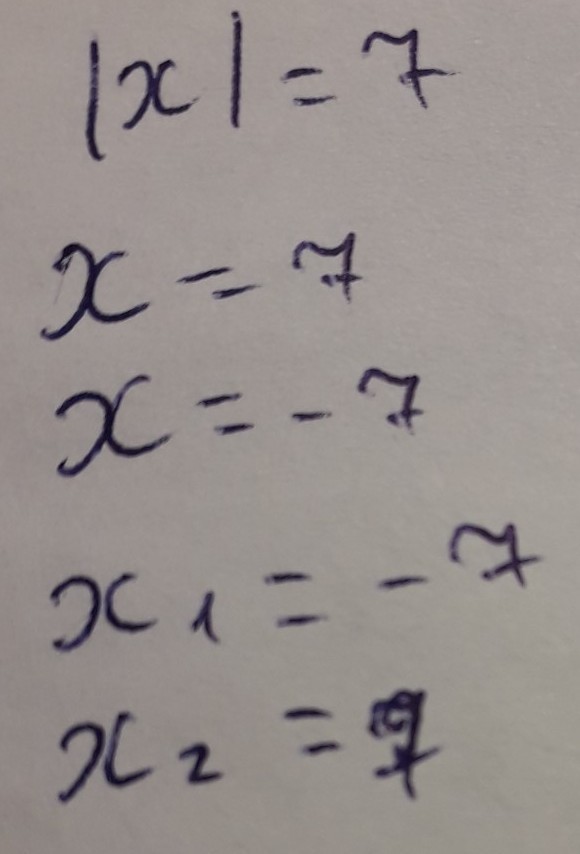 |x| = 7
x = 7
x = - 7
x₁ = - 7
x₂ =